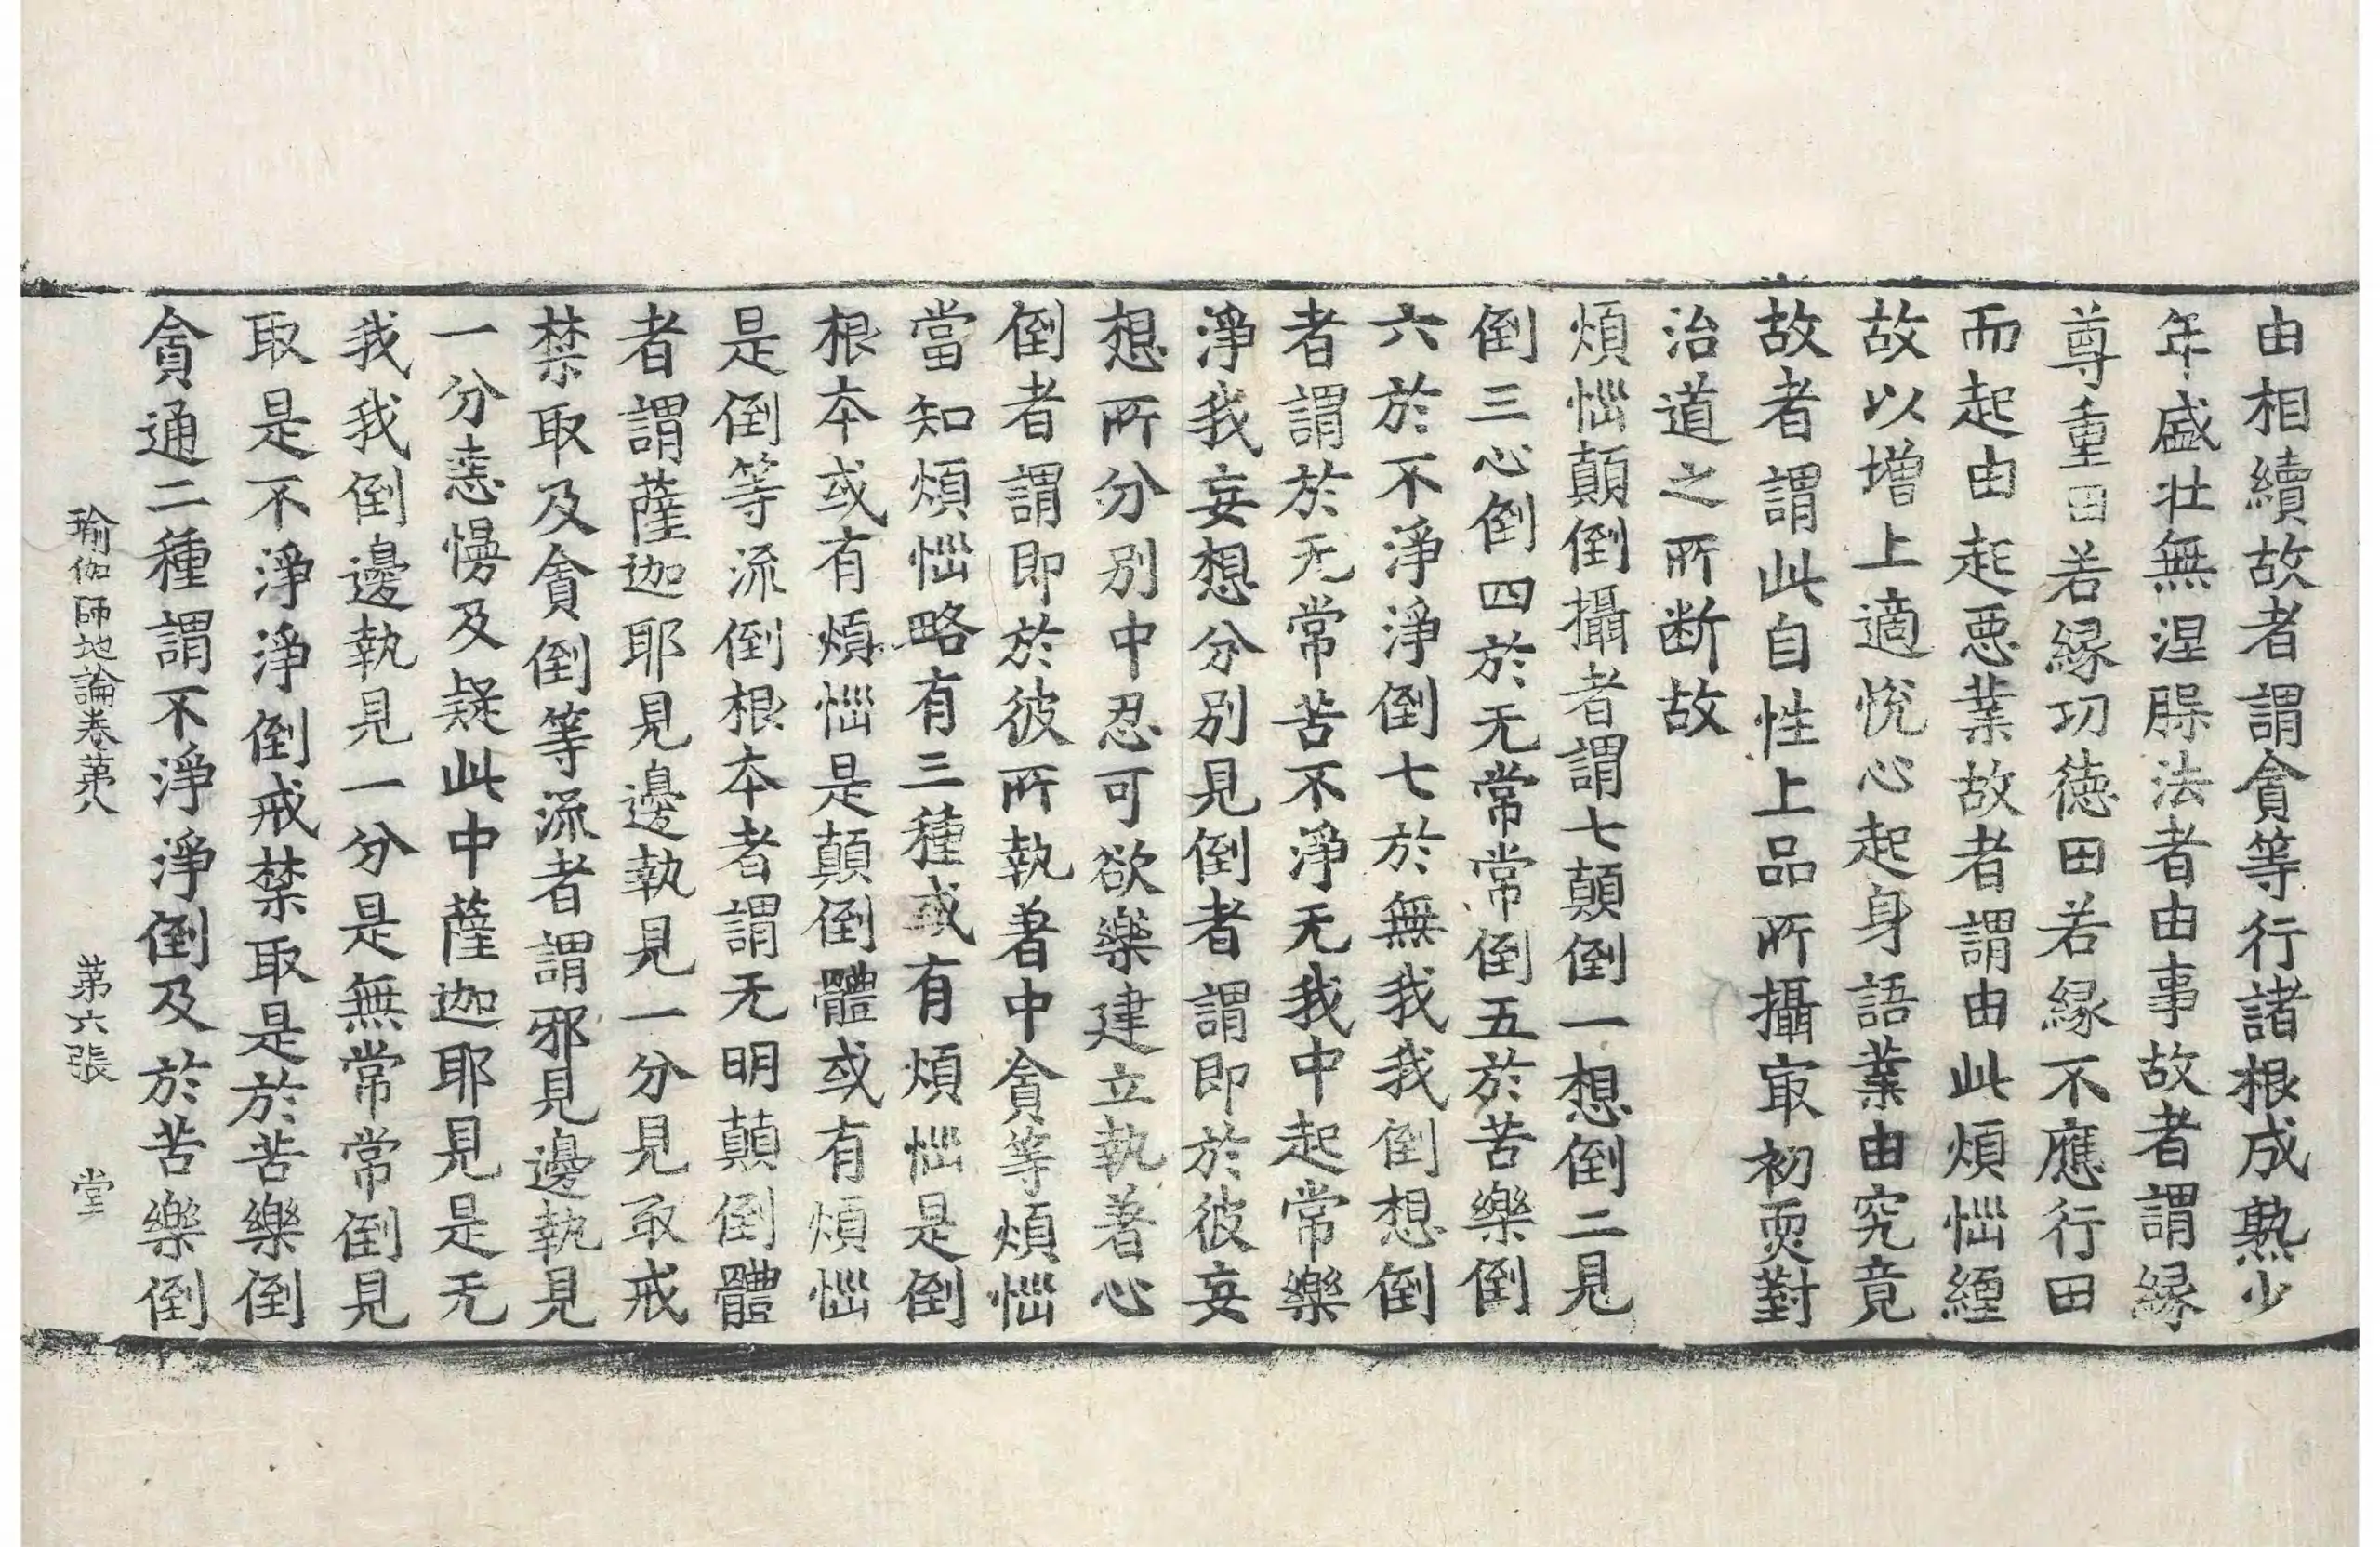 由相續故者謂貪等行諸根成熟少
年盛壯無涅槃法者由事故者謂緣
尊重田若緣功德田若緣不應行田
而起由起惡業故者謂由此煩惱纏
故以增上適悅心起身語業由究竟
故者謂此自性上品所攝冣初耎對
治道之所断故
煩惱顛倒攝者謂七顛倒一想倒二見
倒三心倒四於无常常倒五於苦樂倒
六於不淨淨倒七於無我我倒想倒
者謂於无常苦不淨无我中起常樂
淨我妄想分別見倒者謂即於彼妄
想所分別中忍可欲樂建立執著心
倒者謂即於彼所執著中貪等煩惱
當知煩惱略有三種或有煩惱是倒
根本或有煩惱是顛倒體或有煩惱
是倒等流倒根本者謂无明顛倒體
者謂薩迦耶見邊執見一分見取戒
禁取及貪倒等流者謂邪見邊執見
一分恚慢及疑此中薩迦耶見是无
我我倒邊執見一分是無常常倒見
取是不淨淨倒戒禁取是於苦樂倒
貪通二種謂不淨淨倒及於苦樂倒
瑜伽師地論卷苐八 苐六張 堂